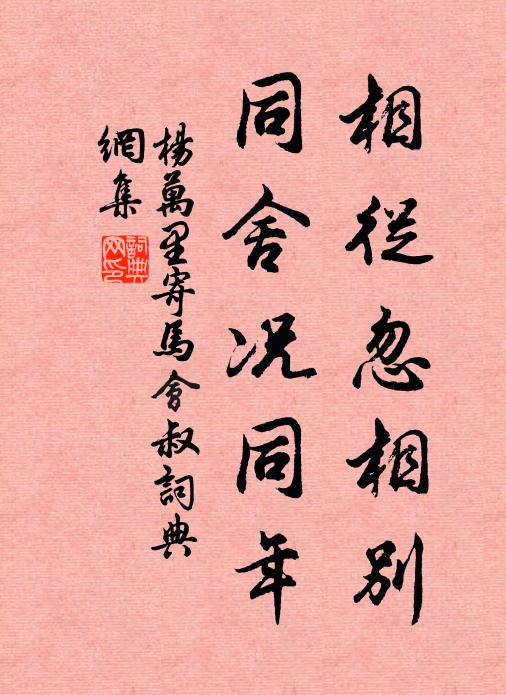 相從忽相別
同舍況同年
楊萬里寄馬會叔詞典
網集
詞典
网印